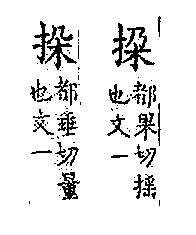 都果切
也文一
挅
都垂切量
也文一